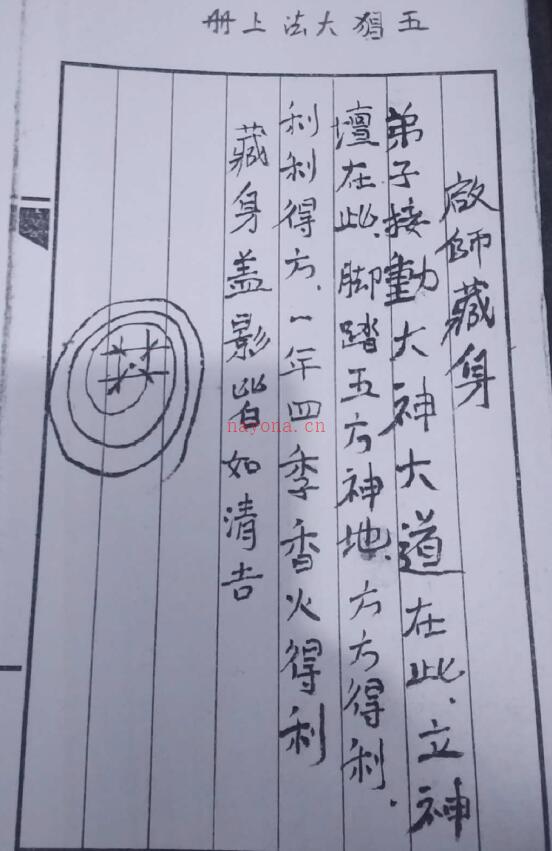 五猖大法上册
啟師藏身
弟子接動大神大道在此.立神
壇在此.脚踏五方神地.方方得利.
利利得方.一年四季香火得利
藏身盖影皆如清吉
nayona.cn